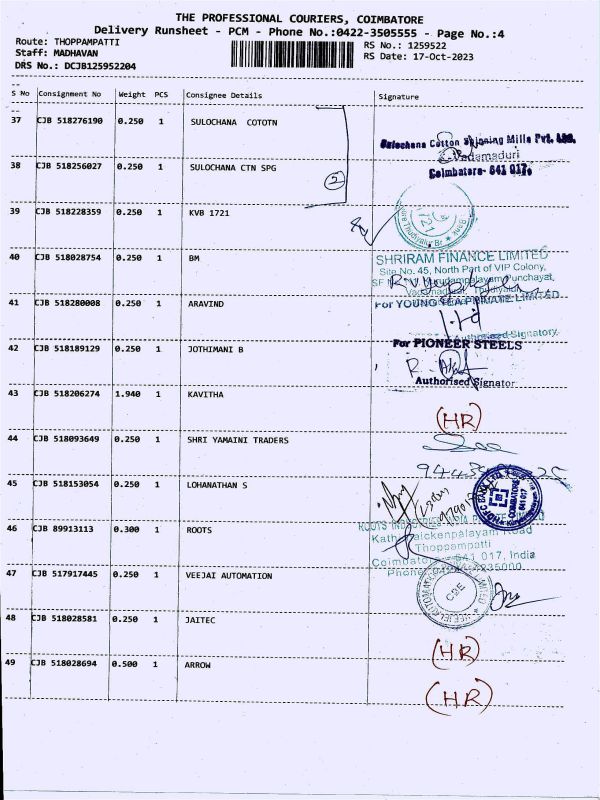 THE PROFESSIONAL COURIERS, COIMBATORE
Delivery Runsheet - PCM - Phone No.:0422-3505555 - Page No.:4
Route: THOPPAMPATTI
RS No.: 1259522
Staff: MADHAVAN
RS Date: 17-Oct-2023
DRS No.: DCJB125952204
S No Consignment No Weight PCS Consignee Details Signature
37 CJB 518276190 0.250 1 SULOCHANA COTOTN
Sulochana Cotton Spinning Mills Pvt. Ltd.
Vadamaduri
Coimbatore- 641 017.
38 CJB 518256027 0.250 1 SULOCHANA CTN SPG
2
39 CJB 518228359 0.250 1 KVB 1721
1721
40 CJB 518028754 0.250 1 BM
SHRIRAM FINANCE LIMITED
Site No. 45, North Part of VIP Colony,
41 CJB 518280008 0.250 1 ARAVIND
For YOUNG TEA PRIVATE LIMITED
Authorised Signatory
42 CJB 518189129 0.250 1 JOTHIMANI B
For PIONEER STEELS
Authorised Signator
43 CJB 518206274 1.940 1 KAVITHA
(HR)
44 CJB 518093649 0.250 1 SHRI YAMAINI TRADERS
45 CJB 518153054 0.250 1 LOHANATHAN S
HDFC BANK LTD
COIMBATORE
641 017
46 CJB 89913113 0.300 1 ROOTS
ROOTS INDUSTRIES INDIA PRIVATE LIMITED
Thoppampatti
Coimbatore - 641 017, India
47 CJB 517917445 0.250 1 VEEJAI AUTOMATION
CBE
48 CJB 518028581 0.250 1 JAITEC
(HR)
49 CJB 518028694 0.500 1 ARROW
(HR)